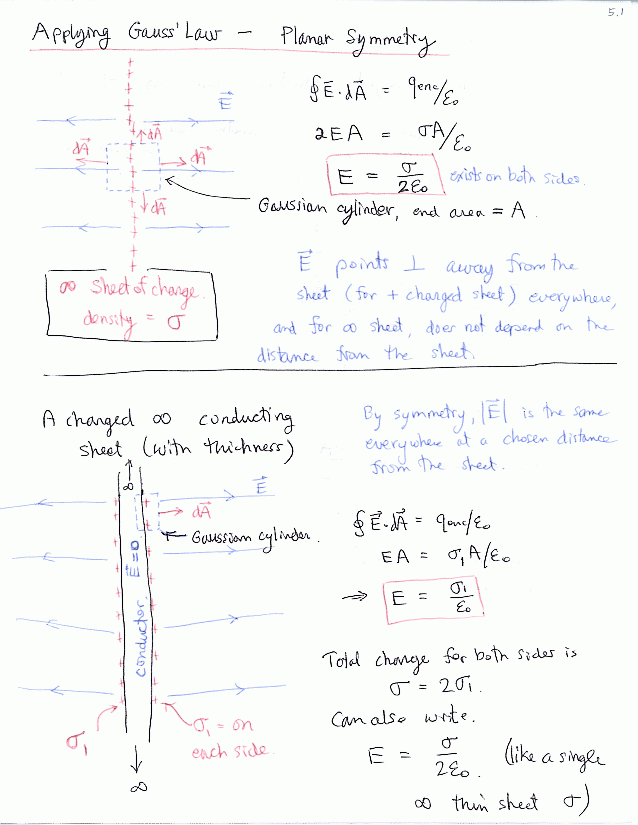 5.1
Applying Gauss' Law — Planar Symmetry
∮E⃗·dA⃗ = qenc/ε₀
E⃗
dA⃗
2EA = σA/ε₀
dA⃗
dA⃗
E = σ/2ε₀ exists on both sides.
dA⃗
Gaussian cylinder, end area = A.
∞ sheet of charge.
density = σ
E⃗ points ⊥ away from the
sheet (for + charged sheet) everywhere,
and for ∞ sheet, does not depend on the
distance from the sheet.
A charged ∞ conducting
sheet (with thickness)
By symmetry, |E⃗| is the same
everywhere at a chosen distance
from the sheet.
∞
E⃗
dA⃗
Gaussian cylinder.
conductor. E=0
∮E⃗·dA⃗ = qenc/ε₀
EA = σ₁A/ε₀
⇒ E = σ₁/ε₀
Total charge for both sides is
σ = 2σ₁.
Can also write.
E = σ/2ε₀. (like a single
∞ thin sheet σ)
σ₁
σ₁ = on
each side.
∞